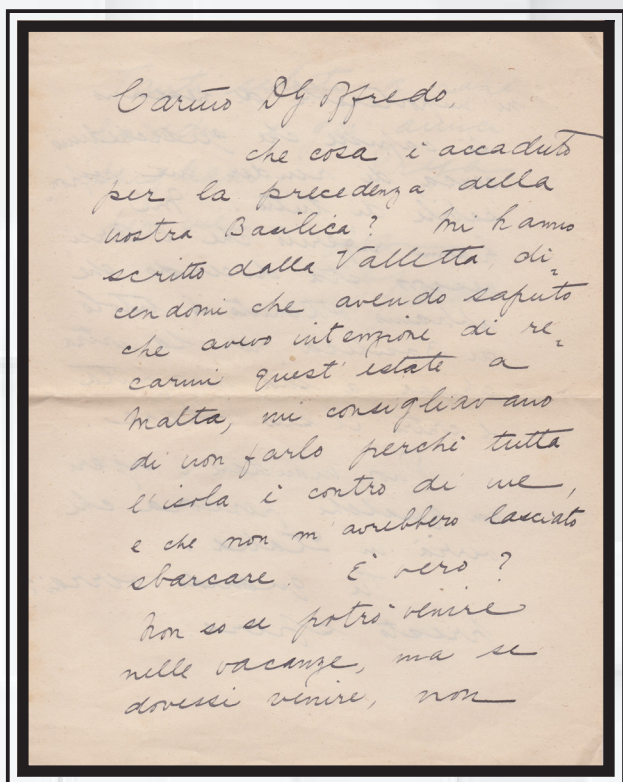 Carmo D G Offredo,
che cosa è accaduto
per la precedenza della
nostra Basilica? Mi hanno
scritto dalla Valletta, di=
cendomi che avendo saputo
che avevo intenzione di re=
carmi quest'estate a
Malta, mi consigliavano
di non farlo perchè tutta
l'isola è contro di me,
e che non m'avrebbero lasciato
sbarcare. È vero?
Non so se potrò venire
nelle vacanze, ma se
dovessi venire, non